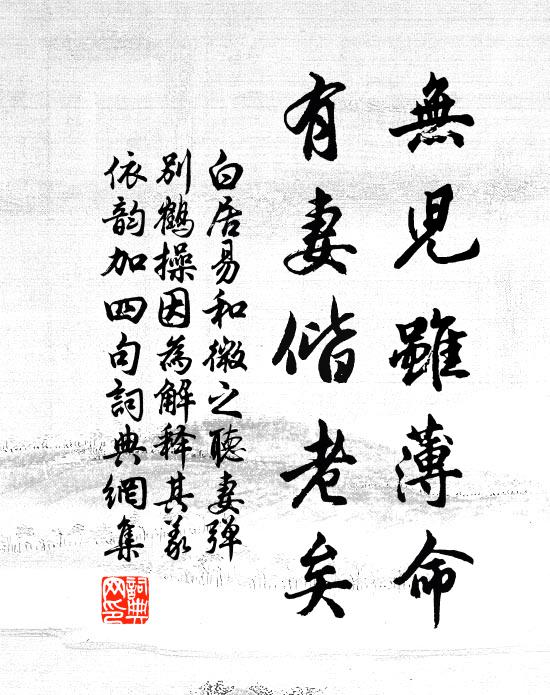 無兒雖薄命
有妻偕老矣
白居易和微之聽妻弹
别鶴操因為解释其義
依韵加四句詞典網集
詞典網印